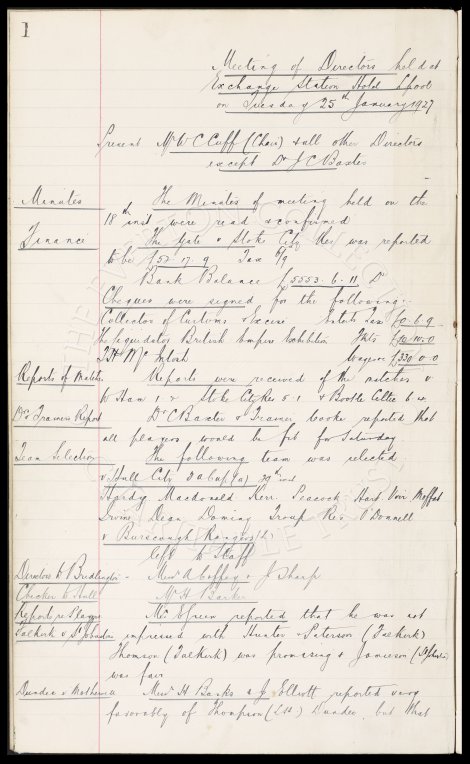 1
Meeting of Directors held at
Exchange Station Hotel L'pool
on Tuesday 25th January 1927
Present Mr W C Cuff (Chair) & all other Directors
except Dr J C Baxter
Minutes The Minutes of meeting held on the
18th inst were read & confirmed
Finance The Gate v Stoke City Res was reported
to be £57.17.9 Tax 6/9
Bank Balance £5553.6.11 Dr
Cheques were signed for the following:-
Collector of Customs & Excise Entets Tax £0.6.9
The liquidator British Empire Exhibition £10.10.0
T H McIntosh Wages £330.0.0
Reports of Matches Reports were received of the matches v
W Ham 1.2 Stoke City Res 5.1 & Bootle Celtic 6.4
Drs Trainers Report Dr C Baxter & Trainer Cooke reported that
all players would be fit for Saturday
Team Selection The following team was selected
v Hull City 29th inst
Hardy Macdonald Kerr Peacock Hart Virr Moffat
Irvine Dean Doming Troup Res O'Donnell
v Burscough Rangers
left to Staff
Directors to Mess A Coffey & J Sharp
Checker to Hull Mr H Barker
Reports re Players Mr E Green reported that he was not
Falkirk v St Johnston impressed with Hunter & Paterson (Falkirk)
Thomson (Falkirk) was promising & Jamieson
was fair
Dundee v Motherwell Mess H Banks & J Elliott reported very
favorably of Thompson Dundee but that